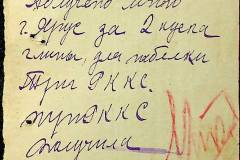 Получено мною
г. Ярус за 2 куска
глины, для побелки
Три РККС.
три РККС
получила